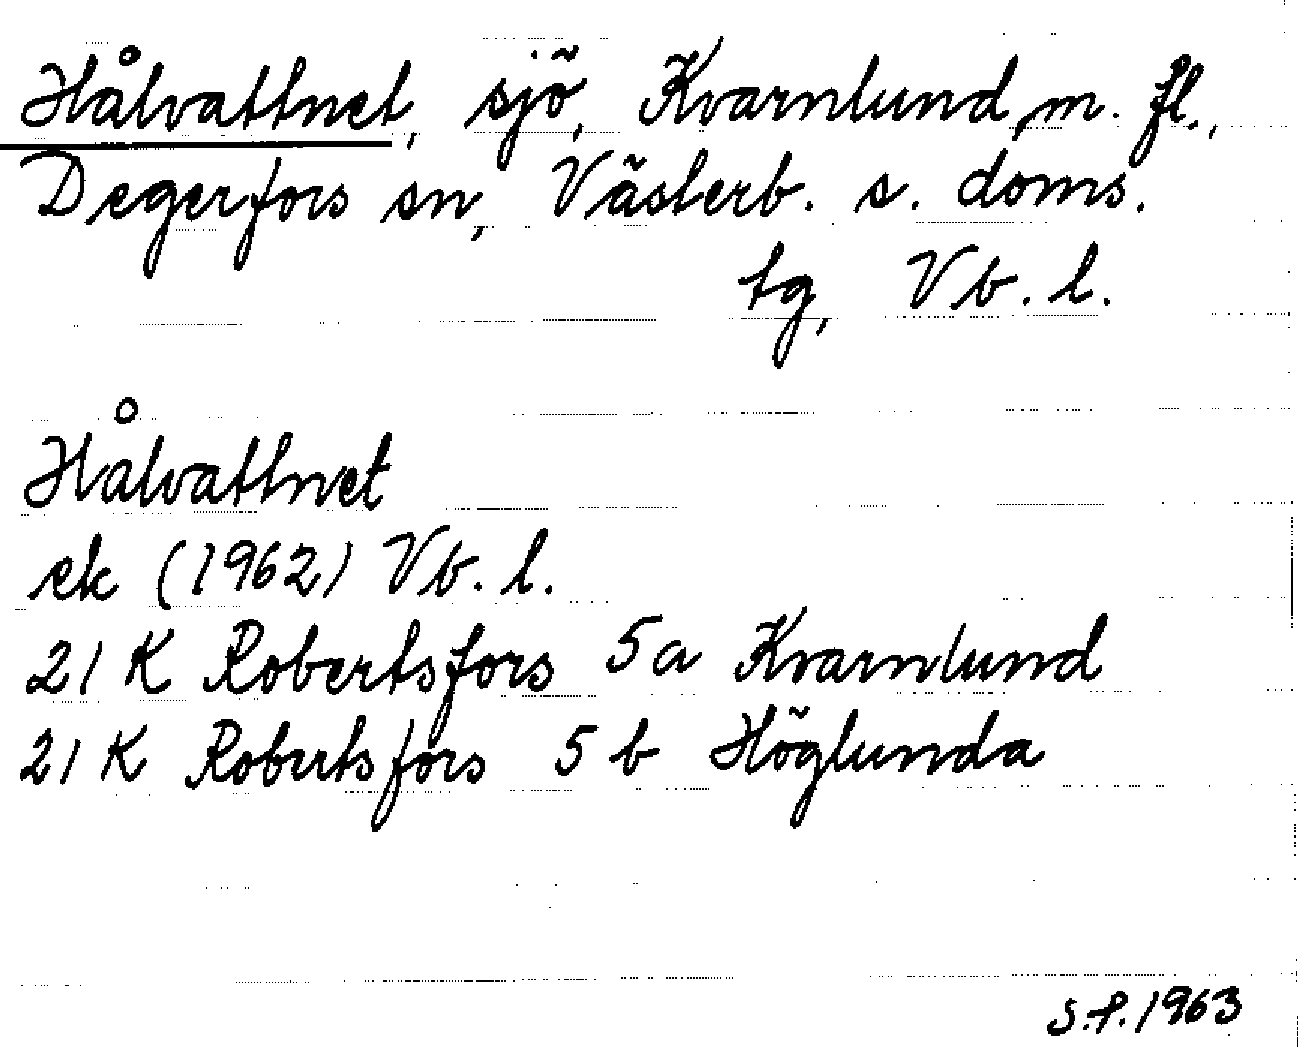 Hålvattnet, sjö, Kvarnlund, m. fl.,
Degerfors sn, Västerb. s. doms.
tg, Vb. l.
Hålvattnet
ek (1962) Vb. l.
21 K Robertsfors 5 a Kvarnlund
21 K Robertsfors 5 b Höglunda
S.P. 1963